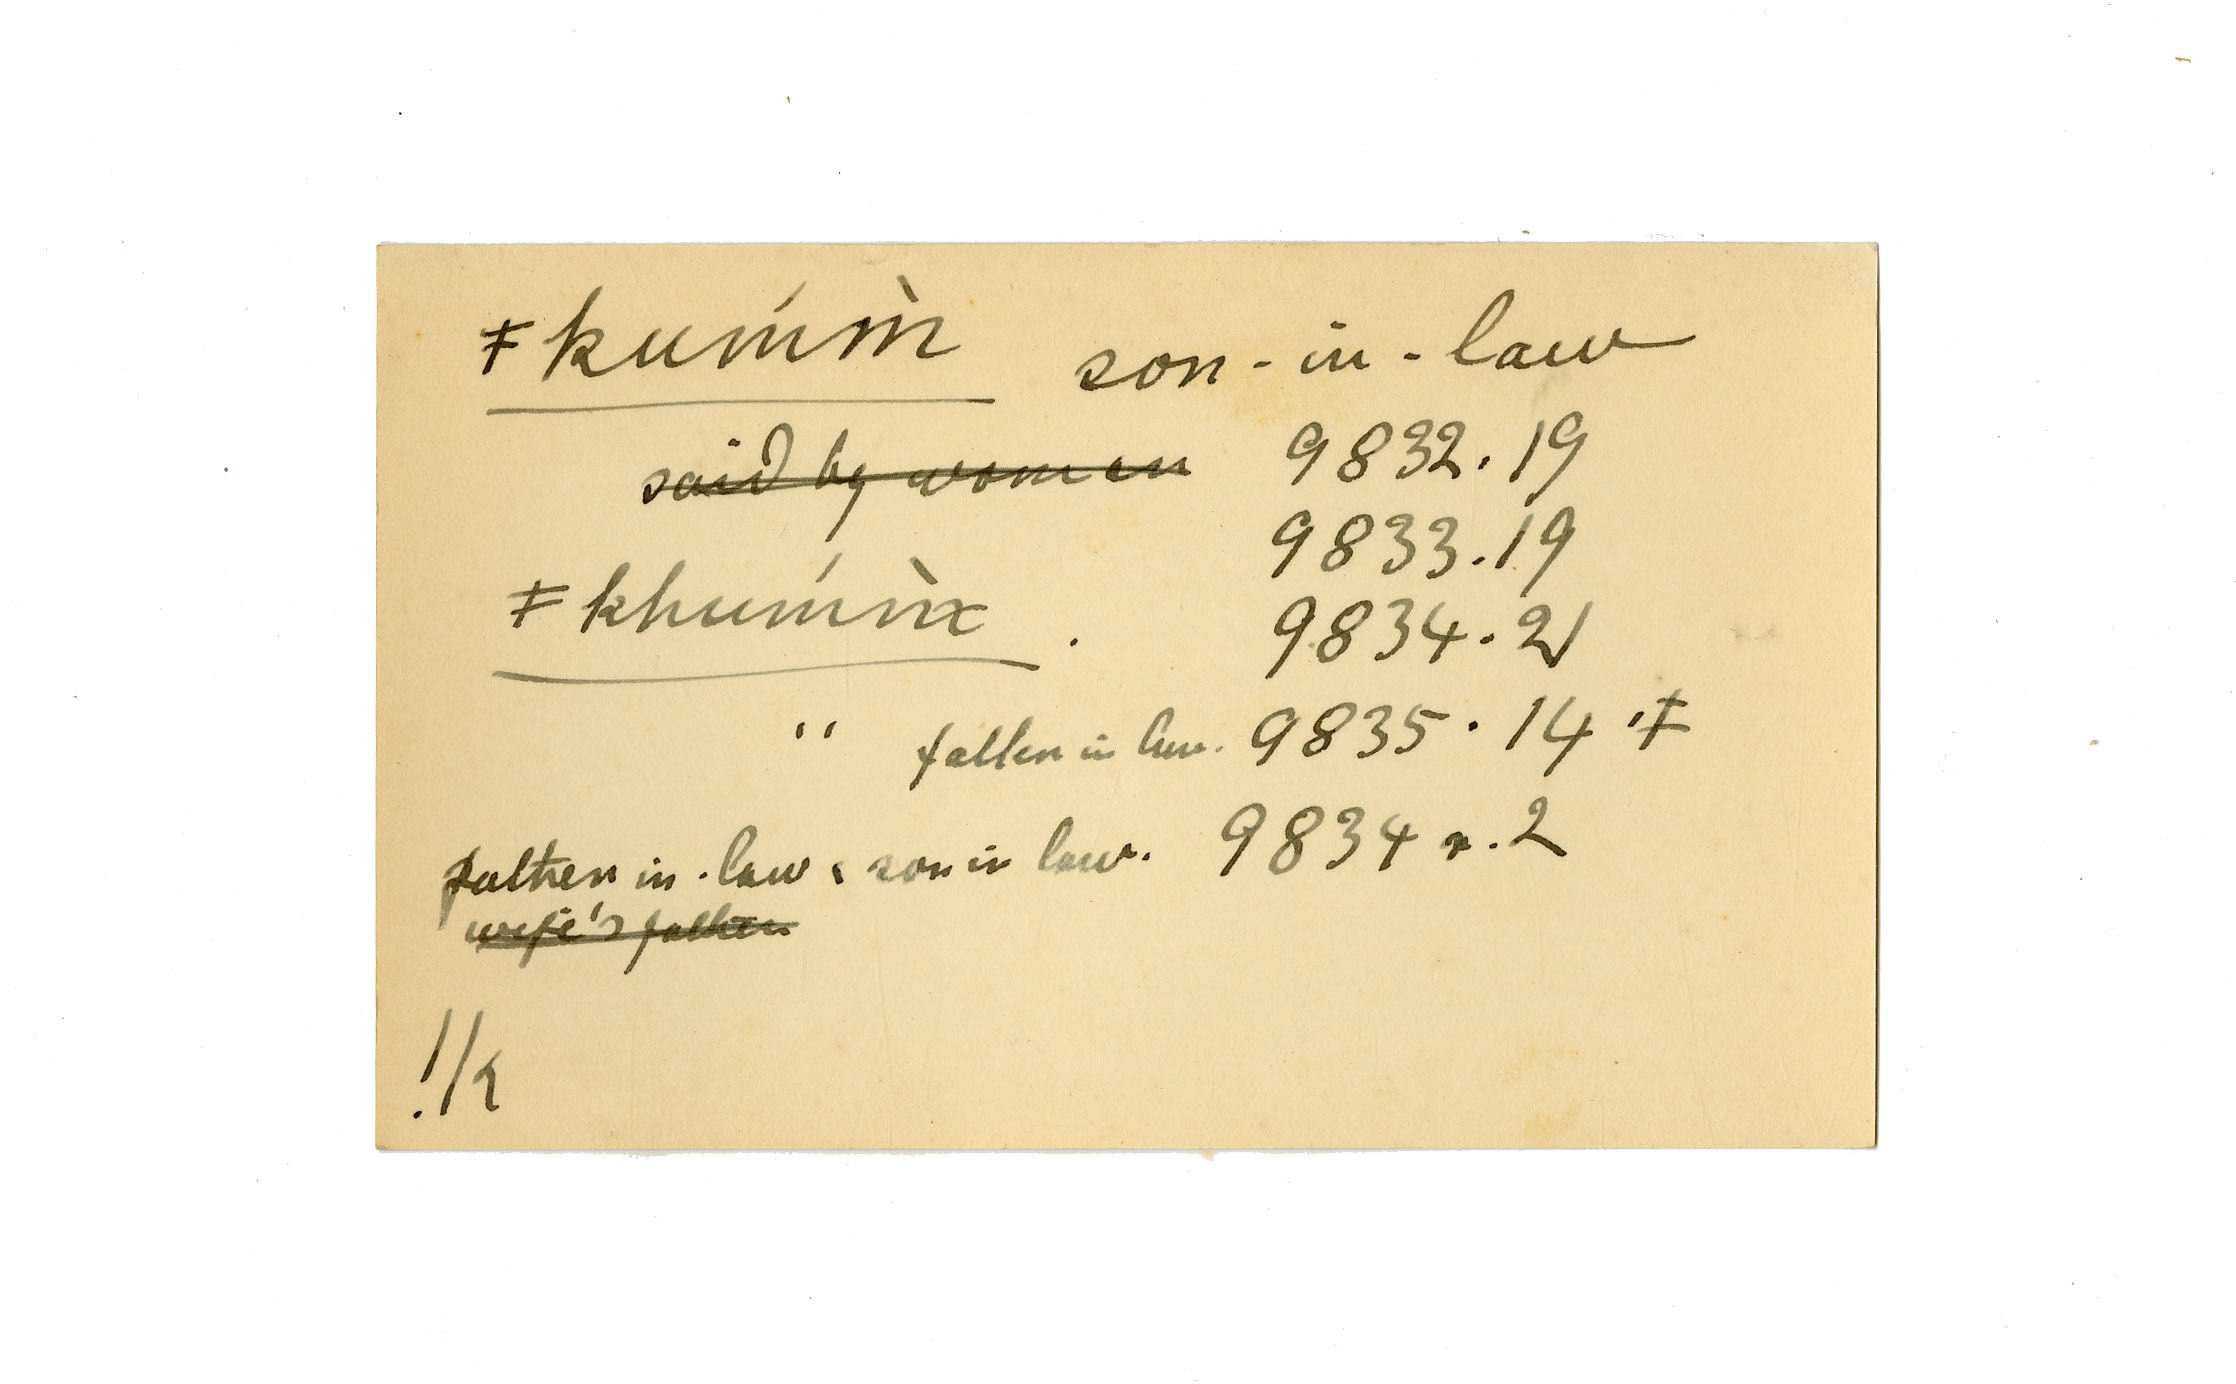 ǂkúm̀m son-in-law
~~said by women~~ 9832.19
9833.19
ǂkhúm̀m . 9834.21
" father in law. 9835.14 'ǂ
father in.law, son in law. 9834 r.2
~~wife's father~~
!/k